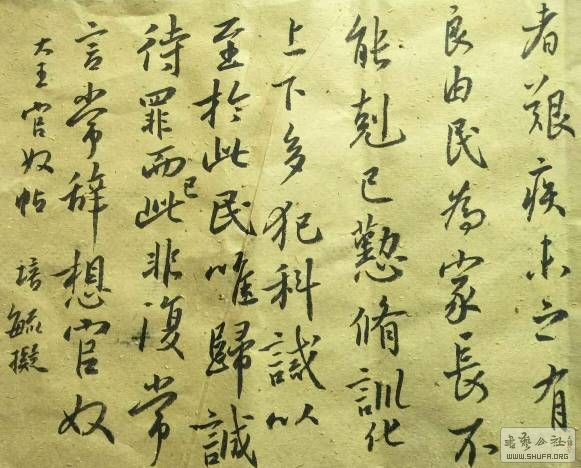 者艱疾未之有
良由民為家長不
能剋己懃脩訓化
上下多犯科誡以
至於此民唯歸誠
待罪而已此非復常
言常辞想官奴
大王官奴帖 培毓擬
书艺公社
WWW.SHUFA.ORG